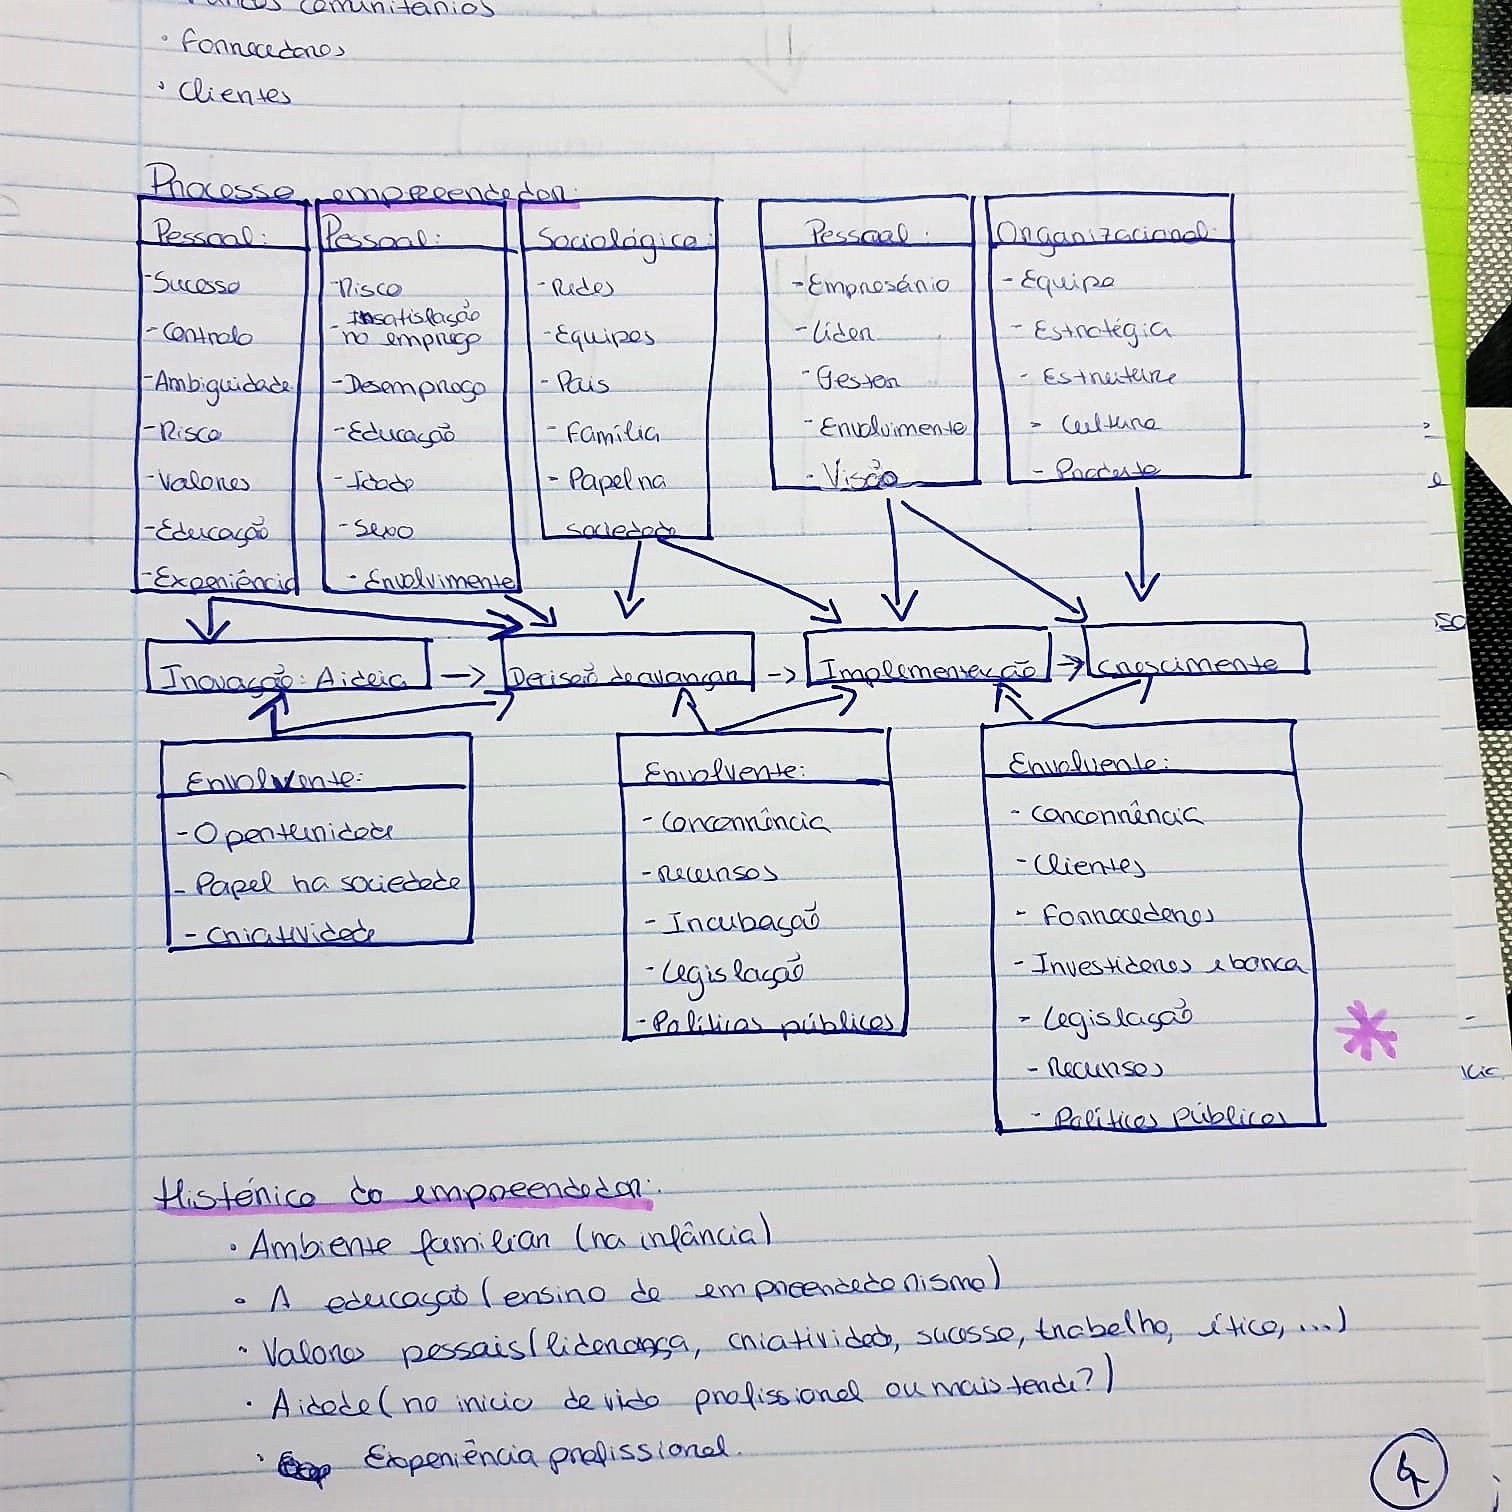 comunitários
· Fornecedores
· Clientes
Processo empreendedor:
Pessoal:
-Sucesso
-Controlo
-Ambiguidade
-Risco
-Valores
-Educação
-Experiência
Pessoal:
-Risco
-Insatisfação
no emprego
-Desemprego
-Educação
-Idade
-Sexo
-Envolvimento
Sociológico:
-Redes
-Equipas
-Pais
-Família
-Papel na
sociedade
Pessoal:
-Empresário
-Líder
-Gestor
-Envolvimento
-Visão
Organizacional:
-Equipa
-Estratégia
-Estrutura
-Cultura
-Produto
Inovação: A ideia -> Decisão de avançar -> Implementação -> Crescimento
Envolvente:
-Oportunidade
-Papel na sociedade
-Criatividade
Envolvente:
-Concorrência
-Recursos
-Incubação
-Legislação
-Políticas públicas
Envolvente:
-Concorrência
-Clientes
-Fornecedores
-Investidores e banca
-Legislação
-Recursos
-Políticas Públicas
Histórico do empreendedor:
· Ambiente familiar (na infância)
· A educação (ensino de empreendedorismo)
· Valores pessais (liderança, criatividade, sucesso, trabalho, ética, ...)
· A idade (no inicio de vida profissional ou mais tarde?)
· Experiência profissional.
4